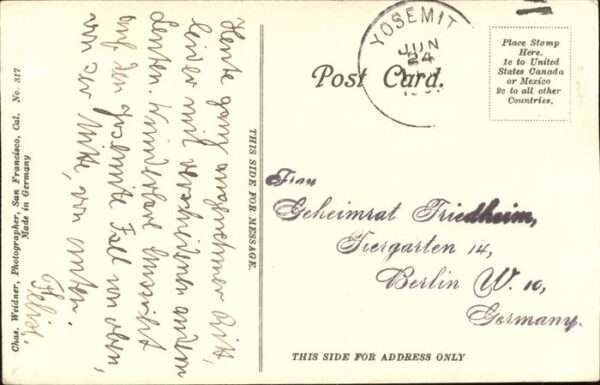 Heute ganz angenehmer Ritt,
leider mit verschiedenen andern
Leuten. Wunderbare Aussicht
auf den Yosemite Fall von oben,
von der Mitte, von unten.
THIS SIDE FOR MESSAGE.
Chas. Weidner, Photographer, San Francisco, Cal. No. 317
Made in Germany
YOSEMIT
JUN
24
Post Card.
Place Stamp
Here.
1c to United
States Canada
or Mexico
2c to all other
Countries.
Frau
Geheimrat Friedheim,
Tiergarten 14,
Berlin W. 10,
Germany.
THIS SIDE FOR ADDRESS ONLY